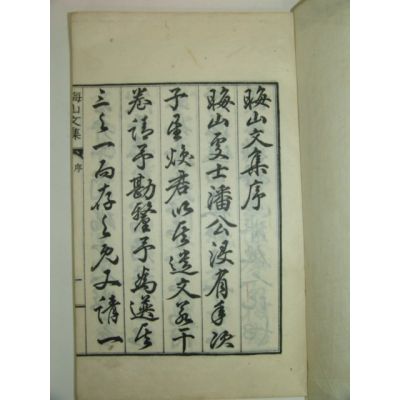 晦山文集序
晦山處士潘公沒有年次
子煥君以其遺文若干
卷請予勘釐予為選其
三之一而存之又請一
晦山文集 序 一